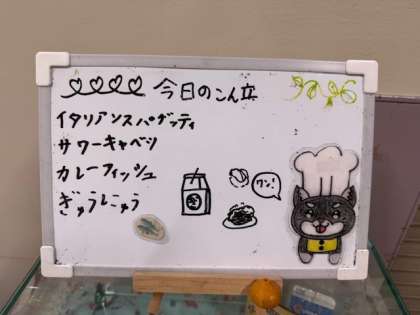 今日のこん立
イタリアンスパゲッティ
サワーキャベツ
カレーフィッシュ
ぎゅうにゅう
ワン!